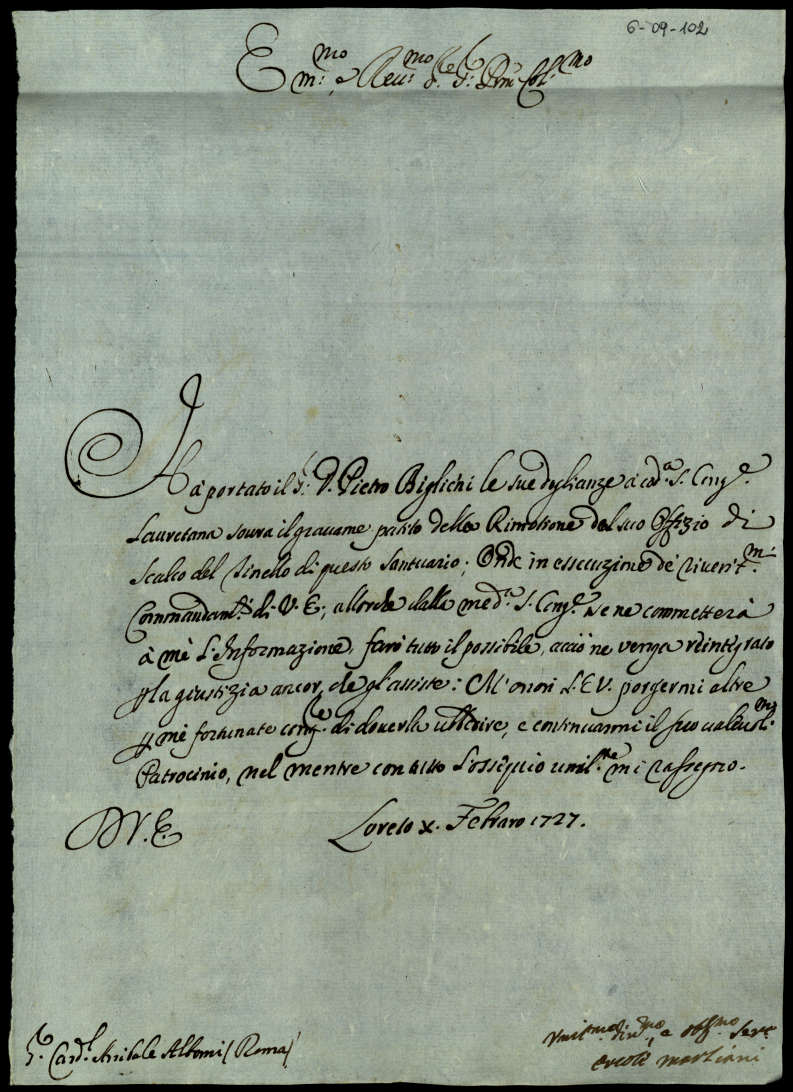 6-09-102
Em:mo e Reu:mo Sre S: Pnē Col:mo
Hà portato il S: D. Pietro Biglichi le sue doglianze à cod.a S. Cong.e
Lauretana soura il grauame patito della Rimotione dal suo Offizio di
Scalco del Tinello di questo Santuario; Onde in essecuzione de' riuerit.mi
Commandam.ti di V. E., allorche dalla med.a S. Cong.e se ne commetterà
à mè L'Informazione, farò tutto il possibile, acciò ne venga reintegrato
p la giustizia ancor, che gl'assiste: M'onori L'E V. porgermi altre
p mè fortunate cong.re di douerla ubbidire, e continuarmi il suo ualeuol.mo
Patrocinio, nel mentre con tutto L'ossequio umil.te mi rassegno.
D V. E. Loreto X. Febraro 1727.
S.r Card.l Anibale Albani (Roma)
Umil.mo Diu.mo, e obl.mo Ser.e
Ercole Marziani